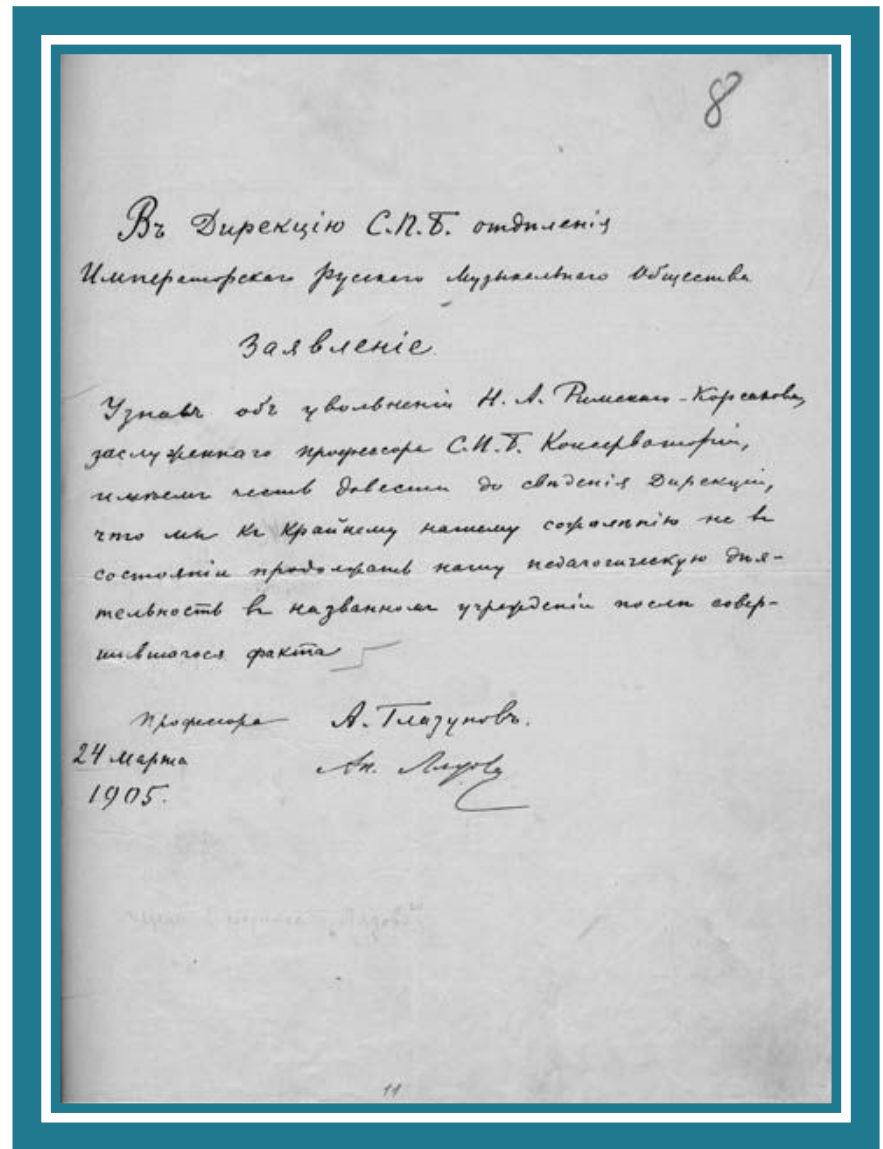 8
Въ Дирекцію С.П.Б. отдѣленія
Императорскаго Русскаго Музыкальнаго Общества
Заявленіе.
Узнавъ объ увольненіи Н. А. Римскаго-Корсакова,
заслуженнаго профессора С.П.Б. Консерваторіи,
имѣемъ честь довести до свѣдѣнія Дирекціи,
что мы къ крайнему нашему сожалѣнію не въ
состояніи продолжать нашу педагогическую дѣя-
тельность въ названномъ учрежденіи послѣ совер-
шившагося факта
Профессора А. Глазуновъ.
24 марта Ан. Лядовъ
1905.
11